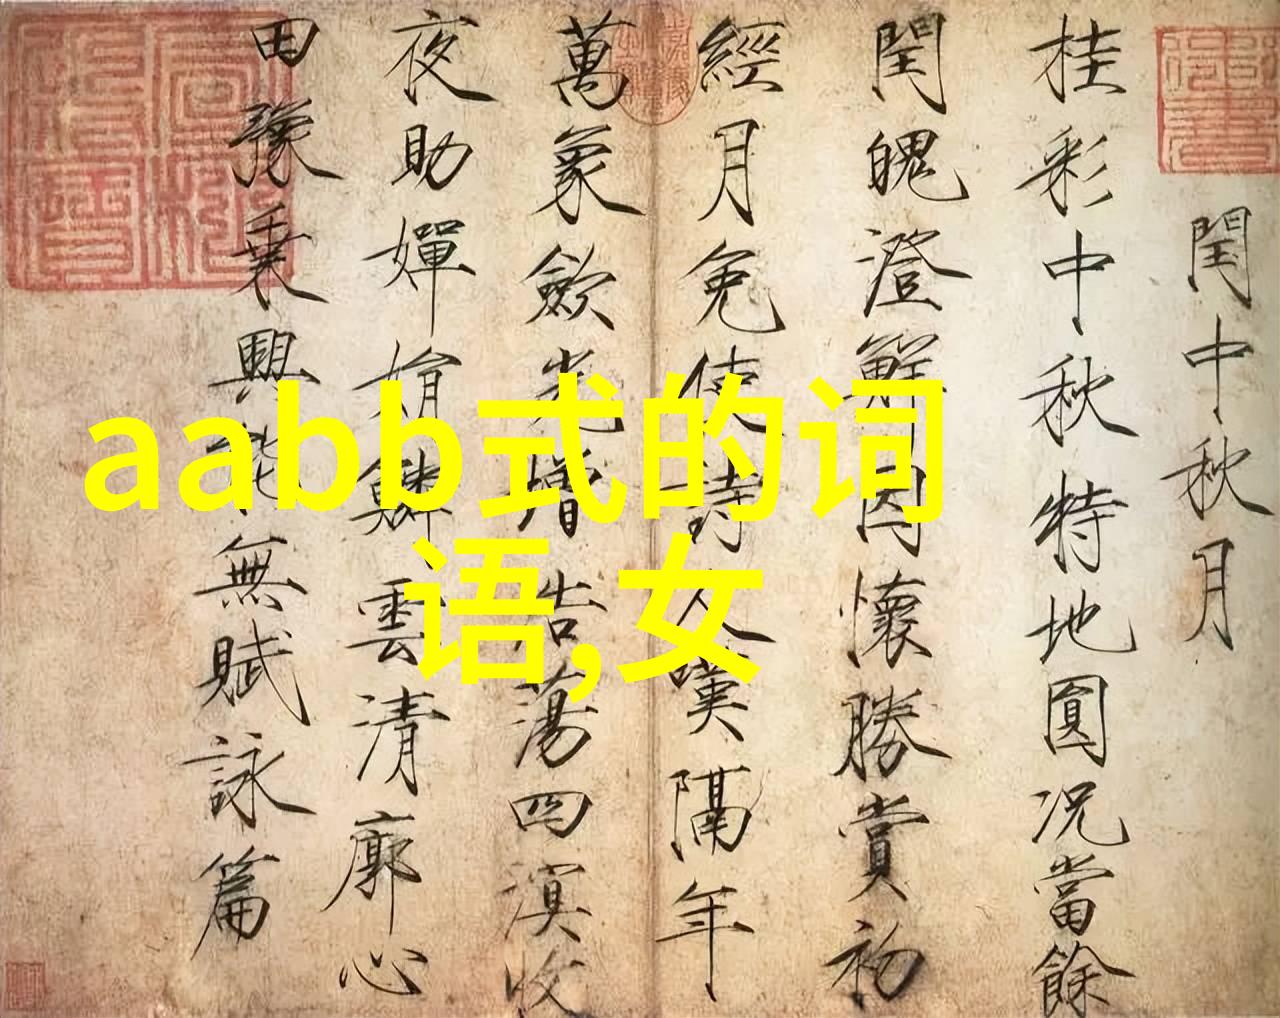 閏中秋月
桂彩中秋特地圓況當餘
閏魄澄鮮因懷勝賞初
經月免使詩人嘆隔年
萬象斂光增浩蕩四溟收
夜助嬋娟鱗雲清廓心
田豫乗興能無賦詠篇
aabb式的词
语,女